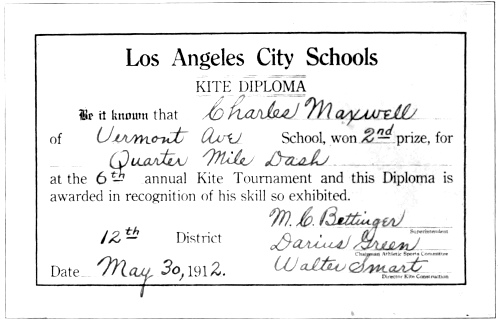 Los Angeles City Schools
KITE DIPLOMA
Be it known that Charles Maxwell
of Vermont Ave School, won 2nd prize, for
Quarter Mile Dash
at the 6th annual Kite Tournament and this Diploma is
awarded in recognition of his skill so exhibited.
M. C. Bettinger
Superintendent
12th District
Darius Green
Chairman Athletic Sports Committee
Date May 30, 1912.
Walter Smart
Director Kite Construction